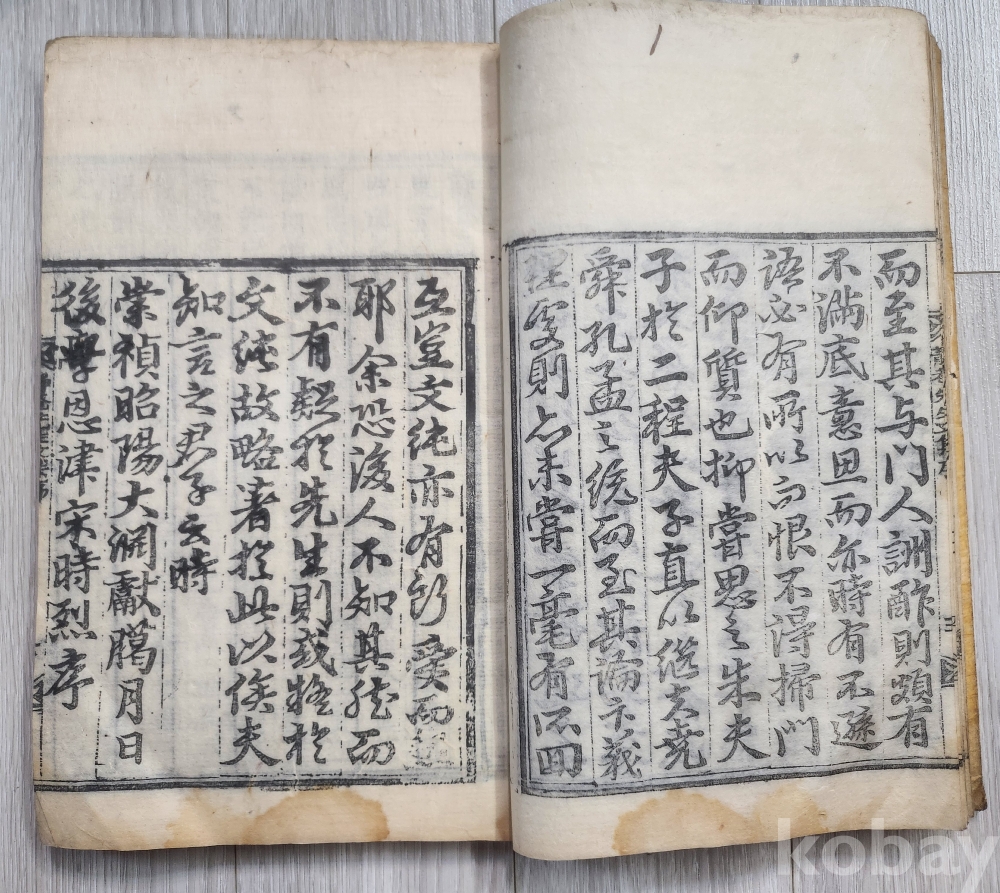 而至其与門人訓酢則頗有
不滿底意思而亦時有不遜
語必有所以而恨不得掃門
而仰質也抑嘗思之朱夫
子於二程夫子直以继夫堯
舜孔孟之统而至其論文義
處則亦未嘗一毫有所回
互豈文纯亦有所受而
耶余恐後人不知其然而
不有疑於先生則或疑於
文纯故略著於此以俟夫
知言之君子云時
崇禎昭陽大淵獻臈月日
後學恩津宋時烈序
kobay